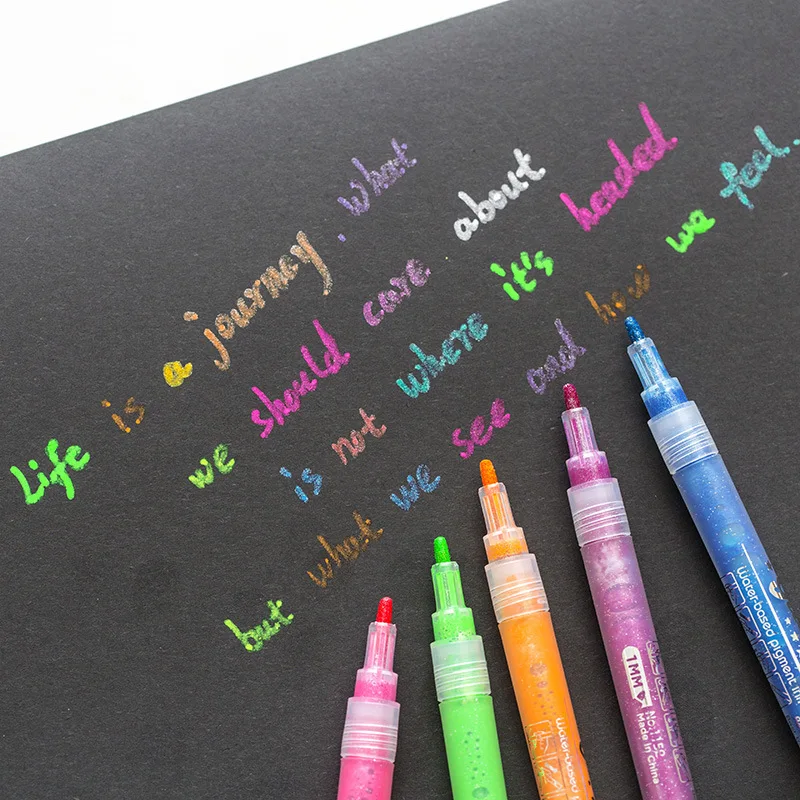 Life is a journey. what
we should care about
is not where it's headed
but what we see and how we feel.
Water-based
1MM
No:1150
Made in China
Water-based pigment ink